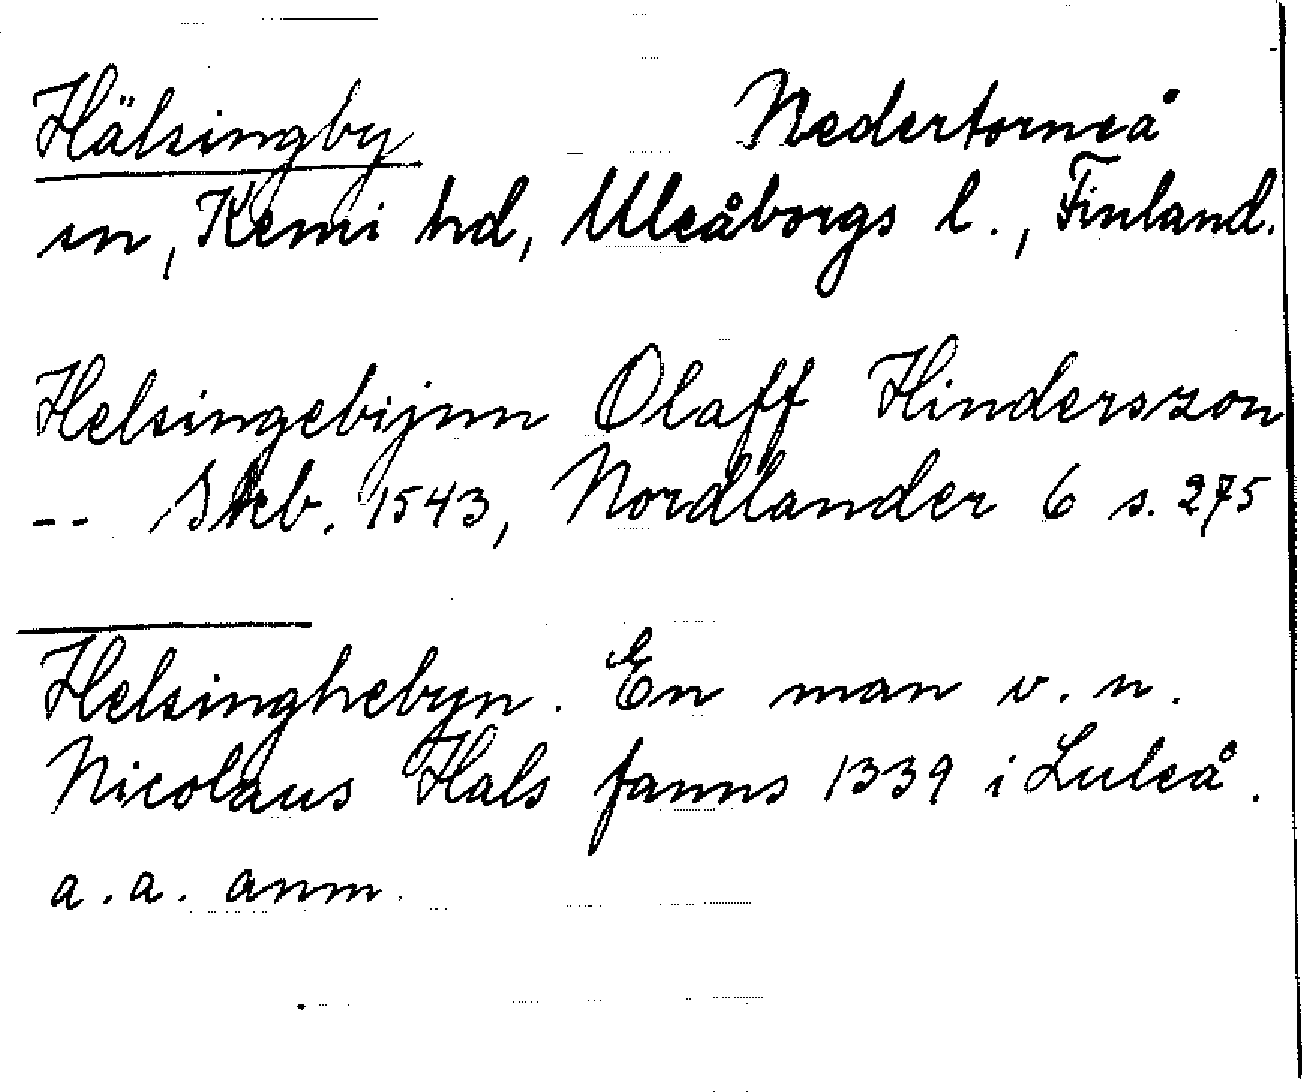 Hälsingby Nedertorneå
sn, Kemi hd, Uleåborgs l., Finland.
Helsingebijnn Olaff Hinderszon
-- Skb. 1543, Nordlander 6 s. 275
Helsinghebyn. En man v. n.
Nicolaus Hals fanns 1339 i Luleå.
a.a. anm.